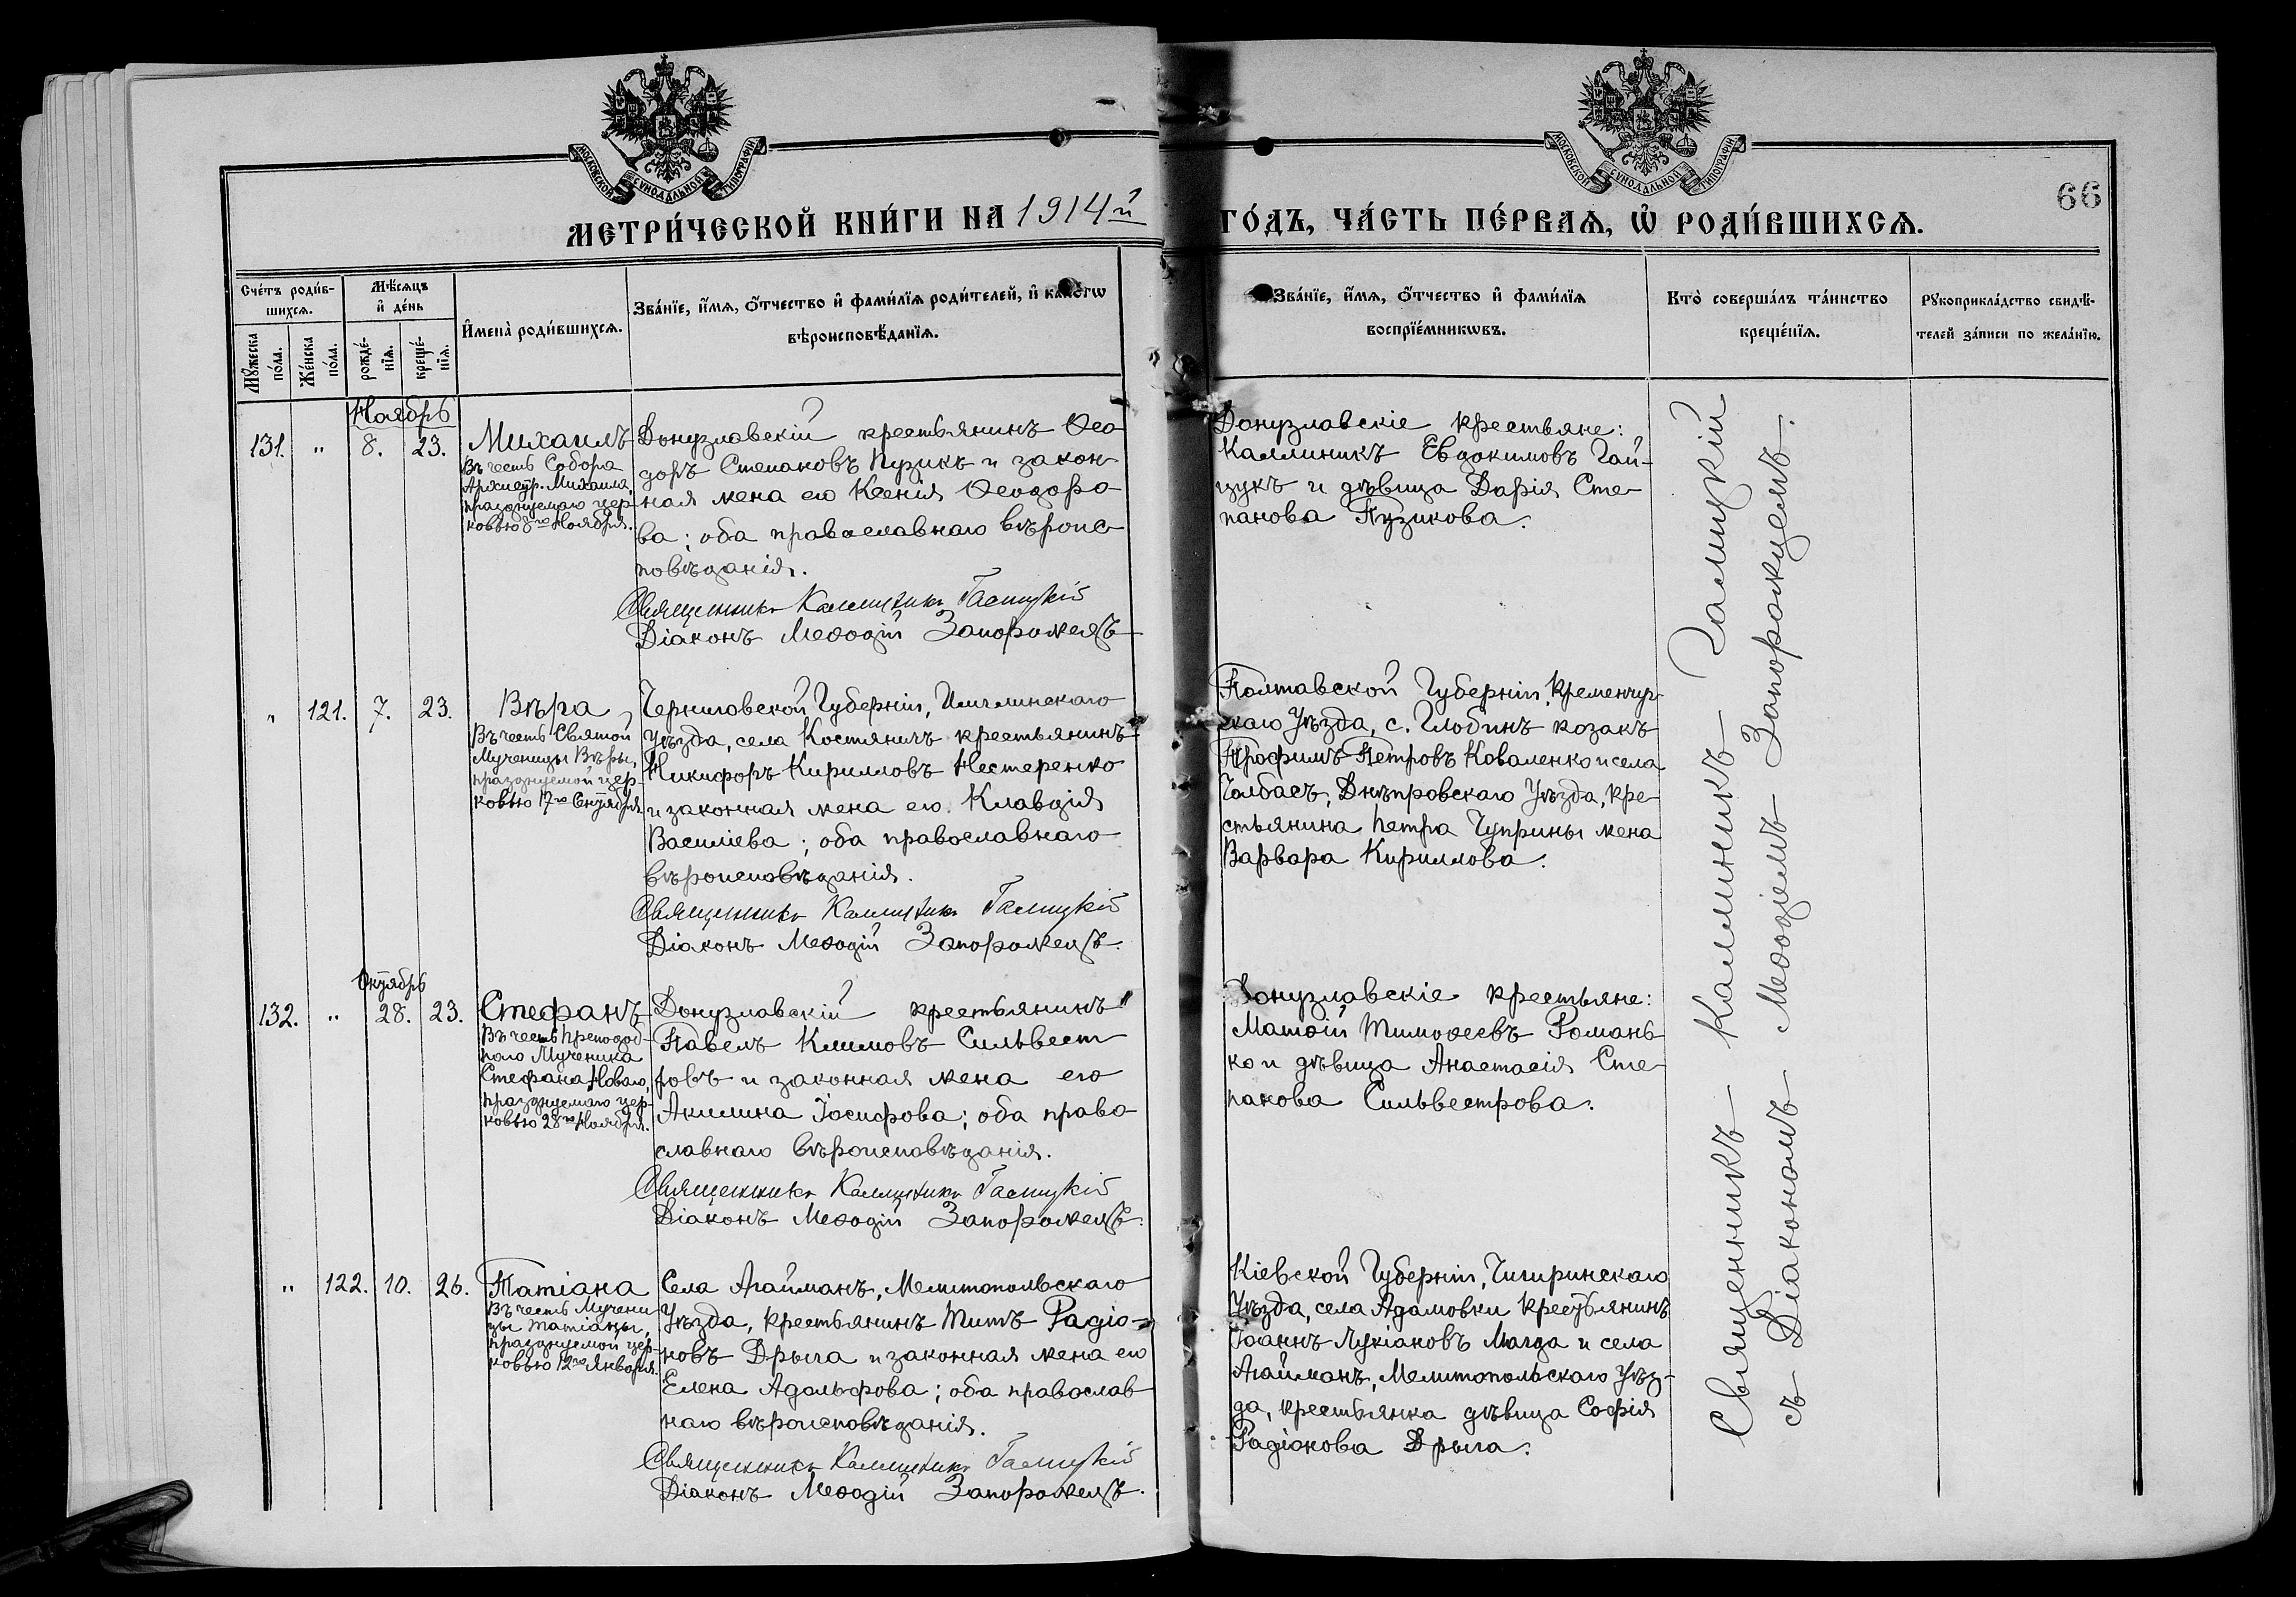 МОСКОВСКОЙ СѴНОДАЛЬНОЙ ТИПОГРАФІИ
МОСКОВСКОЙ СѴНОДАЛЬНОЙ ТИПОГРАФІИ
66
МЕТРИ́ЧЕСКОЙ КНИ́ГИ НА 1914й ГО́ДЪ, ЧА́СТЬ ПЕ́РВАѦ, Ѡ҆ РОДИ́ВШИХСѦ.
Сче́тъ роди́в-
шихсѧ.
Мꙋ́жеска
по́ла.
Же́нска
по́ла.
Мѣ́сѧцъ
и҆ де́нь
рожде́-
нїѧ.
креще́-
нїѧ.
И҆мена̀ роди́вшихсѧ.
Зва́нїе, и҆́мѧ, ѻ҆́тчество и҆ фами́лїѧ роди́телей, и҆ како́гѡ
вѣроисповѣ́данїѧ.
Зва́нїе, и҆́мѧ, ѻ҆́тчество и҆ фами́лїѧ
воспрїе́мникѡвъ.
Кто̀ соверша́лъ та́инство
креще́нїѧ.
Рꙋкоприкла́дство свидѣ́-
телей за́писи по жела́нїю.
Ноябрь
131. " 8. 23.
Михаилъ
Въ честь Собора
Архистр. Михаила,
празднуемаго цер-
ковью 8го Ноября.
Донузлавскій крестьянинъ Ѳео
доръ Степановъ Пузикъ и закон-
ная жена его Ксенія Ѳеодоро
ва; оба православнаго вѣроис
повѣданія.
Священникъ Каллиникъ Галицкій
Діаконъ Меѳодій Запорожецъ
Донузлавскіе крестьяне:
Каллиникъ Евдокимовъ Гай-
цукъ и дѣвица Дарія Сте-
панова Пузикова.
" 121. 7. 23.
Вѣра
Въ честь Святой
Мученицы Вѣры,
празднуемой цер-
ковью 17го Сентября
Черниговской Губерніи,
уѣзда, села крестьянинъ
Никифоръ Кирилловъ Нестеренко
и законная жена его Клавдія
Василіева; оба православнаго
вѣроисповѣданія.
Священникъ Каллиникъ Галицкій
Діаконъ Меѳодій Запорожецъ.
Полтавской Губерніи, Кременчуг-
скаго Уѣзда, с. Глобинъ козакъ
Трофимъ Петровъ Коваленко и села
Чолбасъ, Днѣпровскаго Уѣзда, кре-
стьянина Петра Чуприны жена
Варвара Кириллова.
Октябрь
132. " 28. 23.
Стефанъ
Въ честь Преподоб-
наго Мученика
Стефана Новаго,
празднуемаго цер-
ковью 28го Ноября.
Донузлавскій крестьянинъ
Павелъ Климовъ Сильвест
ровъ и законная жена его
Акилина Іосифова; оба право
славнаго вѣроисповѣданія.
Священникъ Каллиникъ Галицкій
Діаконъ Меѳодій Запорожецъ.
Донузлавскіе крестьяне:
Матѳій Тимоѳеевъ Романь
ко и дѣвица Анастасія Сте-
панова Сильвестрова.
" 122. 10. 26.
Татіана
Въ честь Мучени
цы Татіаны,
празднуемой цер-
ковью 12го Января.
Села Агайманъ, Мелитопольскаго
Уѣзда, крестьянинъ Титъ Радіо-
новъ Дрыга и законная жена его
Елена Адольфова; оба православ
наго вѣроисповѣданія.
Священникъ Каллиникъ Галицкій
Діаконъ Меѳодій Запорожецъ.
Кіевской Губерніи, Чигиринскаго
Уѣзда, села Адамовки крестьянинъ
Іоаннъ Лукіановъ и села
Агайманъ, Мелитопольскаго Уѣз-
да, крестьянка дѣвица Софія
Радіонова Дрыга.
Священникъ Каллиникъ Галицкій
съ Діакономъ Меѳодіемъ Запорожцемъ.